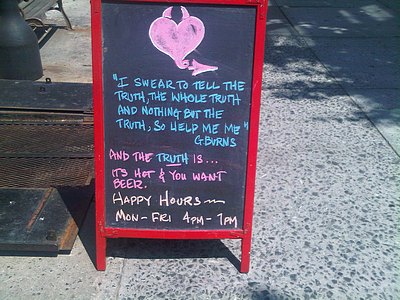 "I SWEAR TO TELL THE
TRUTH, THE WHOLE TRUTH
AND NOTHING BUT THE
TRUTH, SO HELP ME ME"
G.BURNS
AND THE TRUTH IS...
IT'S HOT & YOU WANT
BEER.
HAPPY HOURS
MON - FRI 4PM - 7PM